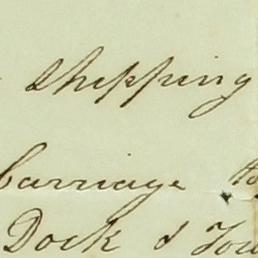 shipping
Carriage to
Dock & Tow